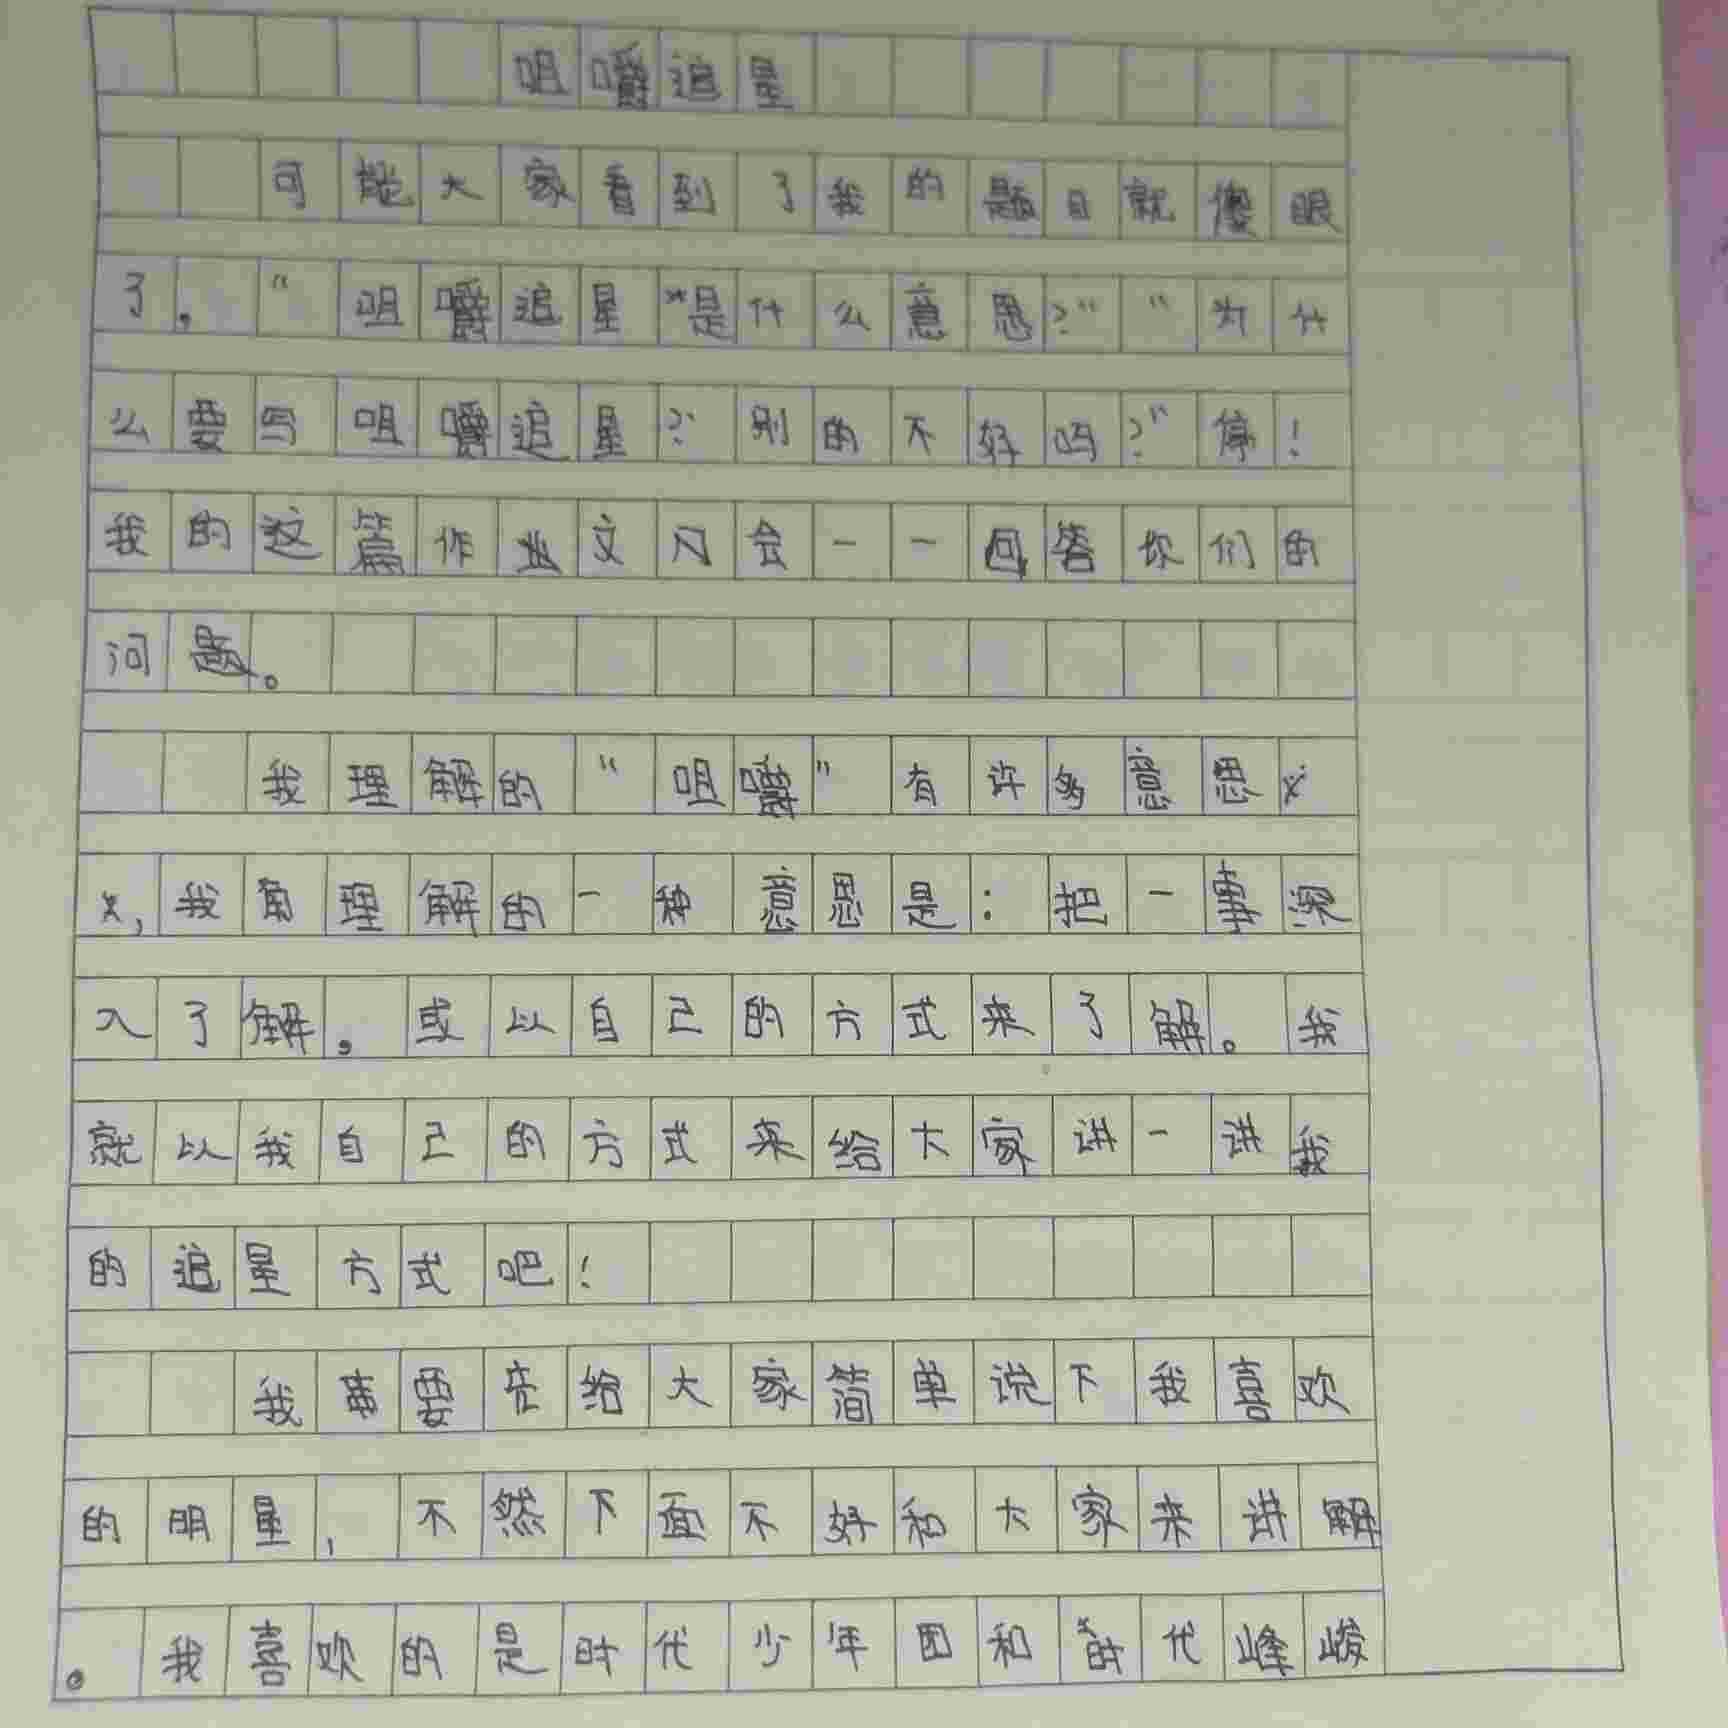 咀嚼追星
可能大家看到了我的题目就傻眼
了。“咀嚼追星”是什么意思?”“为什
么要写咀嚼追星?别的不好吗?”停!
我的这篇作文会一一回答你们的
问题。
我理解的“咀嚼”有许多意思
,我理解的一种意思是:把一事深
入了解。或以自己的方式来了解。我
就以我自己的方式来给大家讲一讲我
的追星方式吧!
我要先给大家简单说下我喜欢
的明星,不然下面不好和大家来讲解
。我喜欢的是时代少年团和时代峰峻